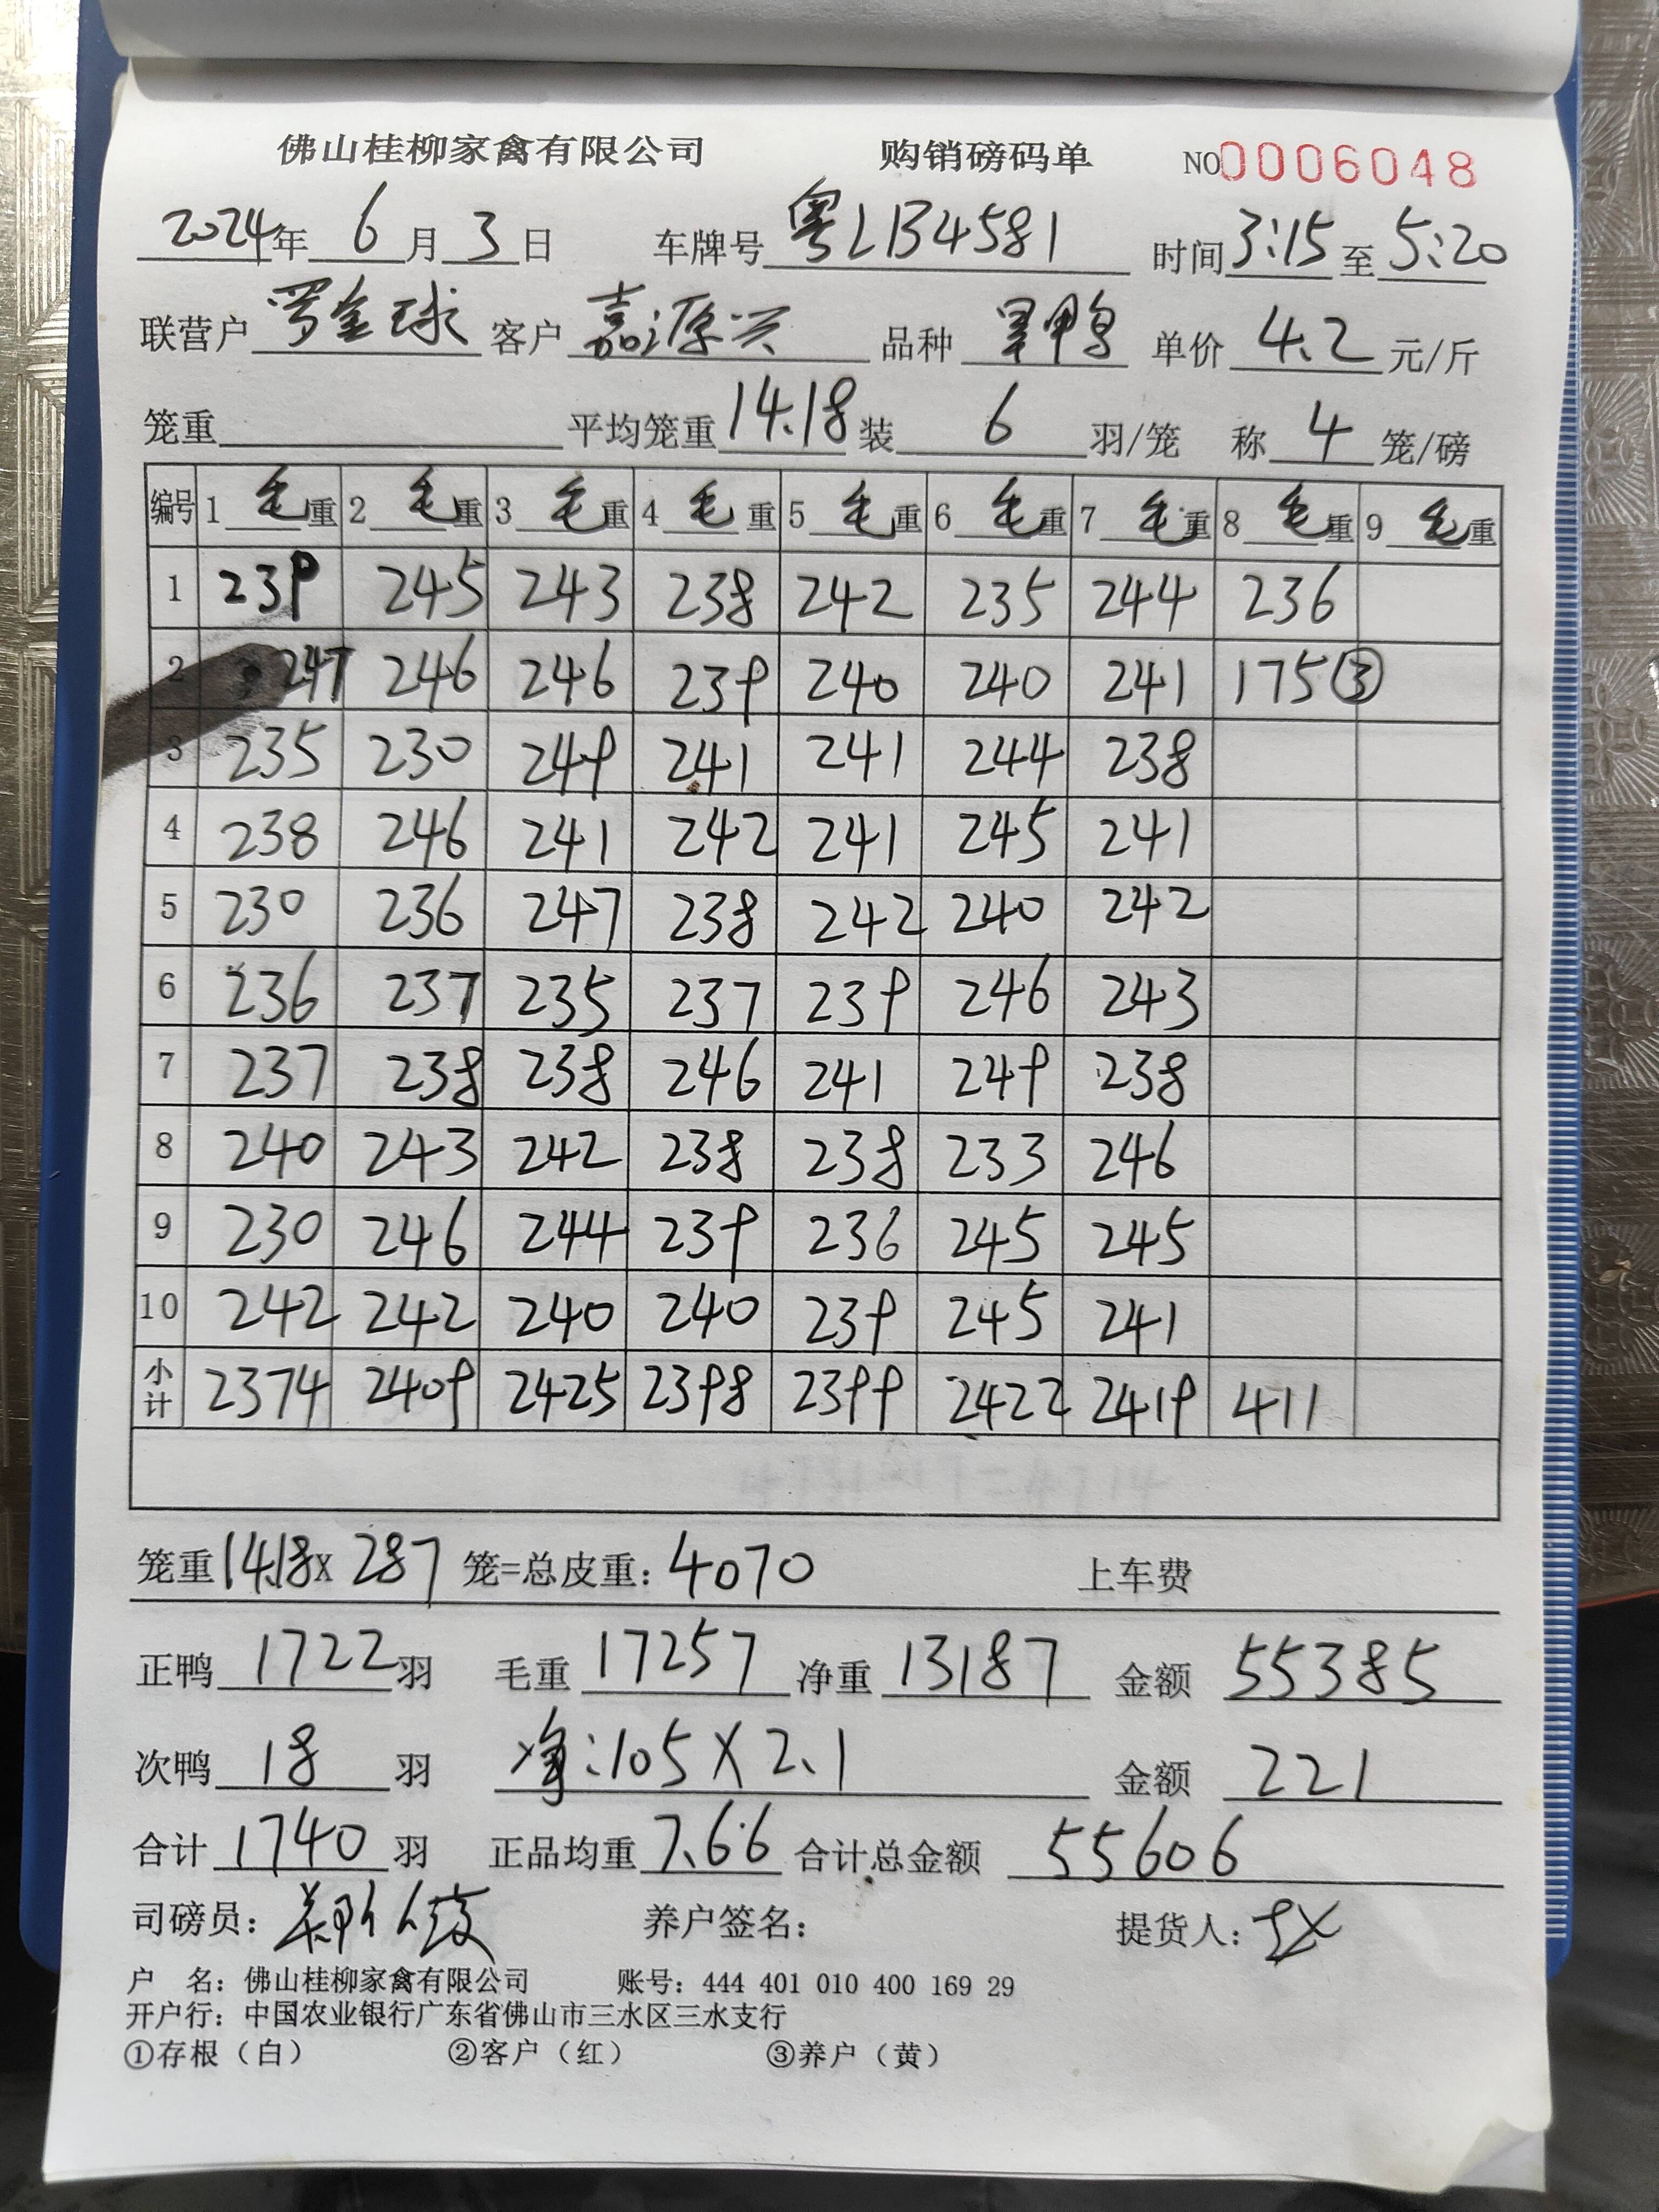 佛山桂柳家禽有限公司 购销磅码单 NO0006048
2024年 6月 3日 车牌号 粤LB4581 时间 3:15 至 5:20
联营户 罗金球 客户 嘉源兴 品种 单价 4.2 元/斤
笼重 平均笼重 14.18 装 6 羽/笼 称 4 笼/磅
编号 1 毛重 2 毛重 3 毛重 4 毛重 5 毛重 6 毛重 7 毛重 8 毛重 9 毛重
1 239 245 243 238 242 235 244 236
2 247 246 246 239 240 240 241 175③
3 235 230 249 241 241 244 238
4 238 246 241 242 241 245 241
5 230 236 247 238 242 240 242
6 236 237 235 237 239 246 243
7 237 238 238 246 241 249 238
8 240 243 242 238 238 233 246
9 230 246 244 239 236 245 245
10 242 242 240 240 239 245 241
小计 2374 2409 2425 2398 2399 2422 2419 411
笼重 14.18 x 287 笼=总皮重: 4070 上车费
正鸭 1722 羽 毛重 17257 净重 13187 金额 55385
次鸭 18 羽 净:105 X 2.1 金额 221
合计 1740 羽 正品均重 7.66 合计总金额 55606
司磅员: 养户签名: 提货人:
户 名: 佛山桂柳家禽有限公司 账号: 444 401 010 400 169 29
开户行: 中国农业银行广东省佛山市三水区三水支行
①存根（白） ②客户（红） ③养户（黄）